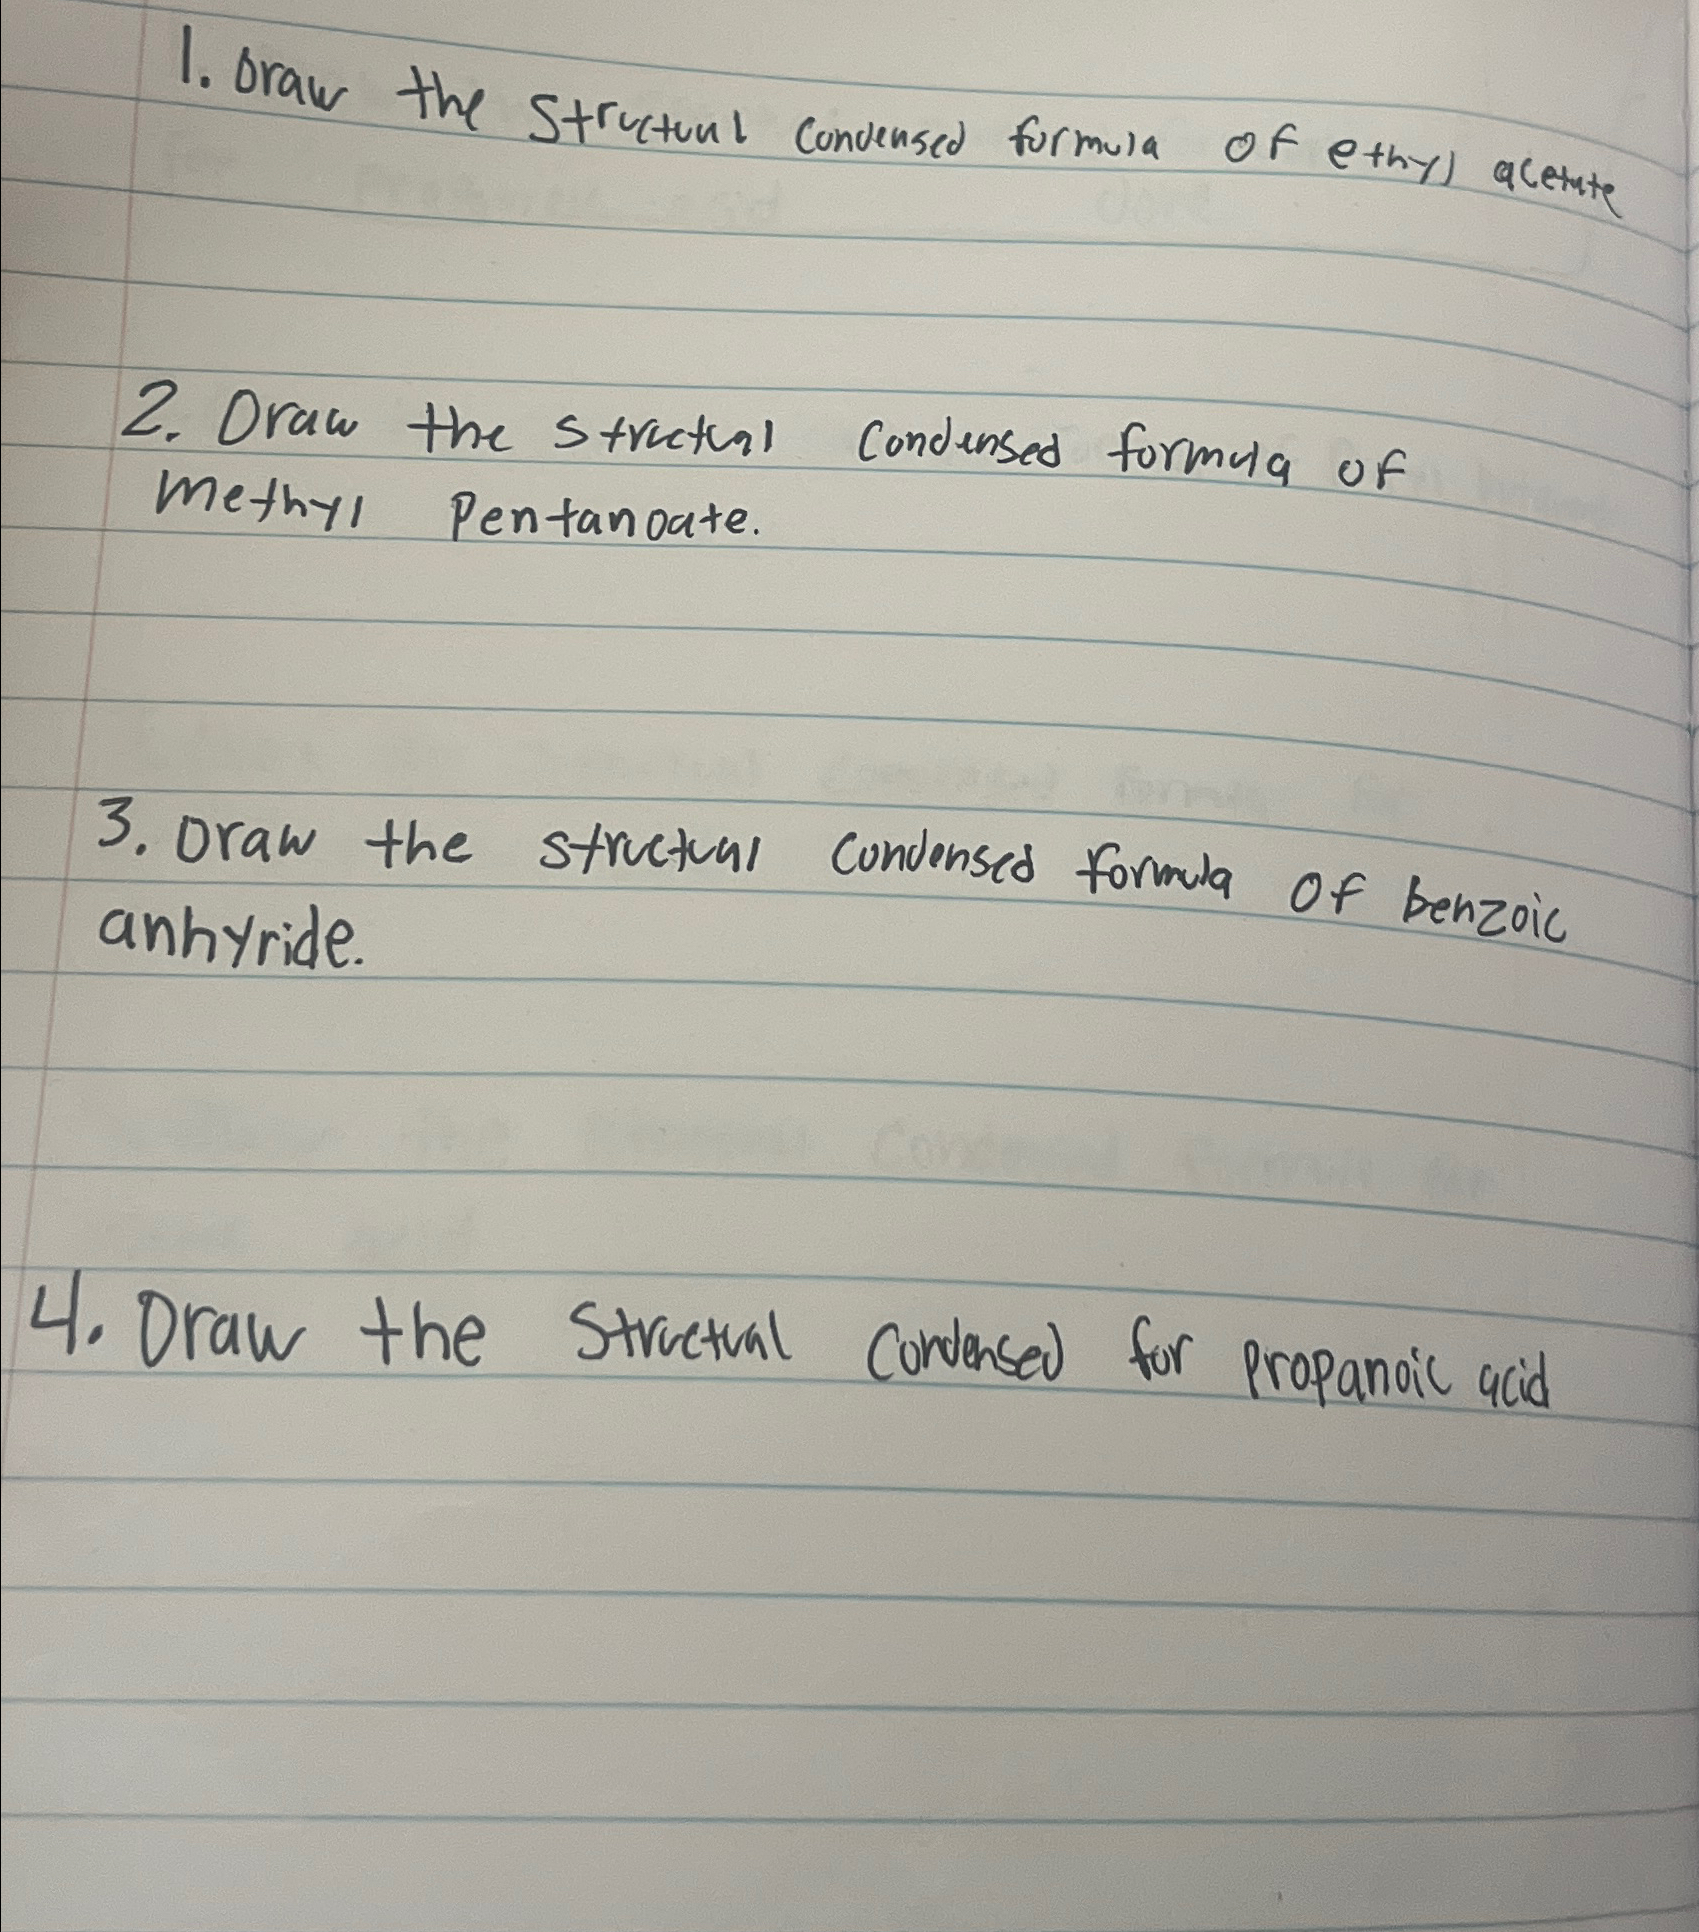 1. Draw the structual condensed formula of ethyl acetate
2. Draw the structual condensed formula of
methyl pentanoate.
3. Draw the structual condensed formula of benzoic
anhyride.
4. Draw the structual condensed for propanoic acid